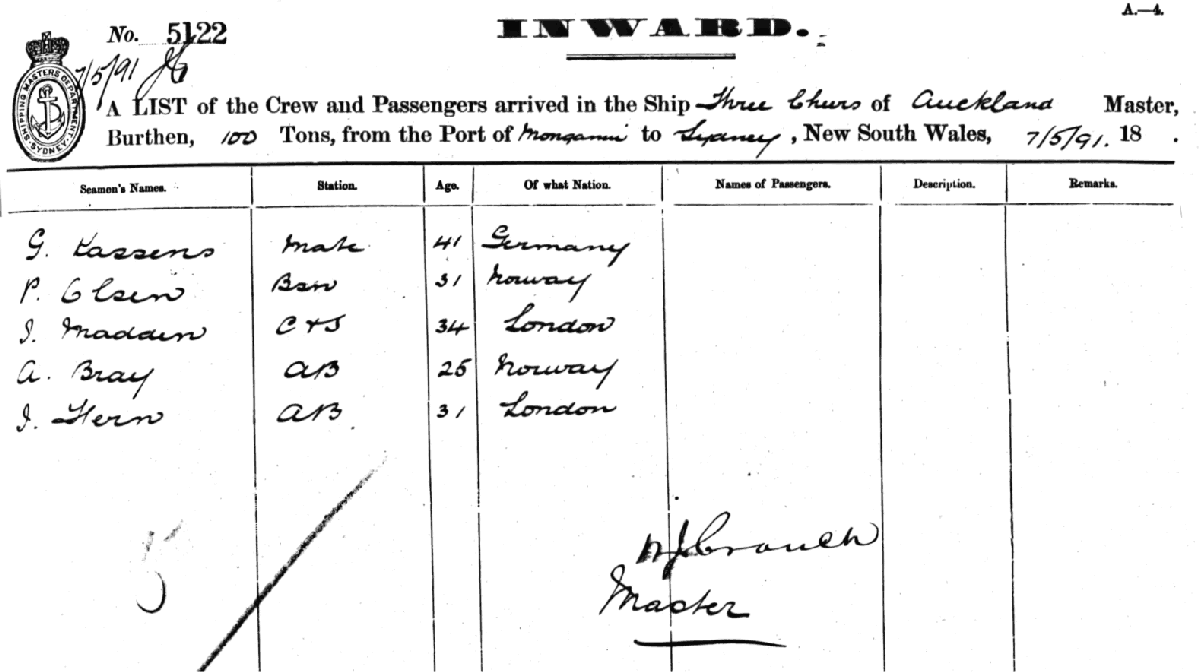 A.—4.
No. 5122
INWARD.
7/5/91
SHIPPING MASTERS DEPARTMENT SYDNEY
A LIST of the Crew and Passengers arrived in the Ship Three Cheers of Auckland Master,
Burthen, 100 Tons, from the Port of Monganui to Sydney, New South Wales, 7/5/91. 18 .
Seamen's Names. Station. Age. Of what Nation. Names of Passengers. Description. Remarks.
G. Kassens Mate 41 Germany
P. Olsen Bsn 31 Norway
J. Madden C & S 34 London
A. Bray AB 25 Norway
J. Hern AB 31 London
5
Crouch
Master